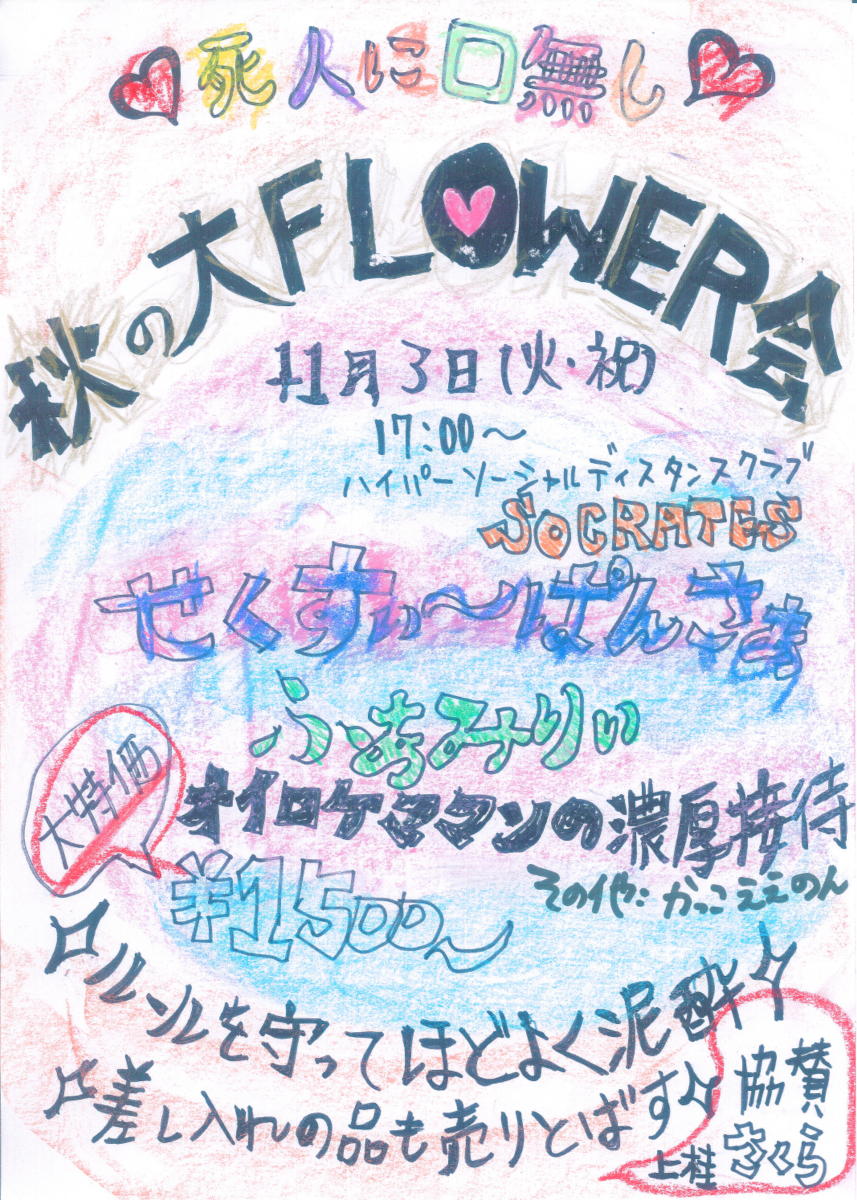 死人に口無し
秋の大FLOWER会
11月3日(火・祝)
17:00〜
ハイパーソーシャルディスタンスクラブ
SOCRATES
せくすぃ〜ぱんさぁ
ふぁみりぃ
大特価
オイロケママンの濃厚接待
¥1500〜
その他:かっこええのん
ルールを守ってほどよく泥酔
差し入れの品も売りとばす
協賛
上桂